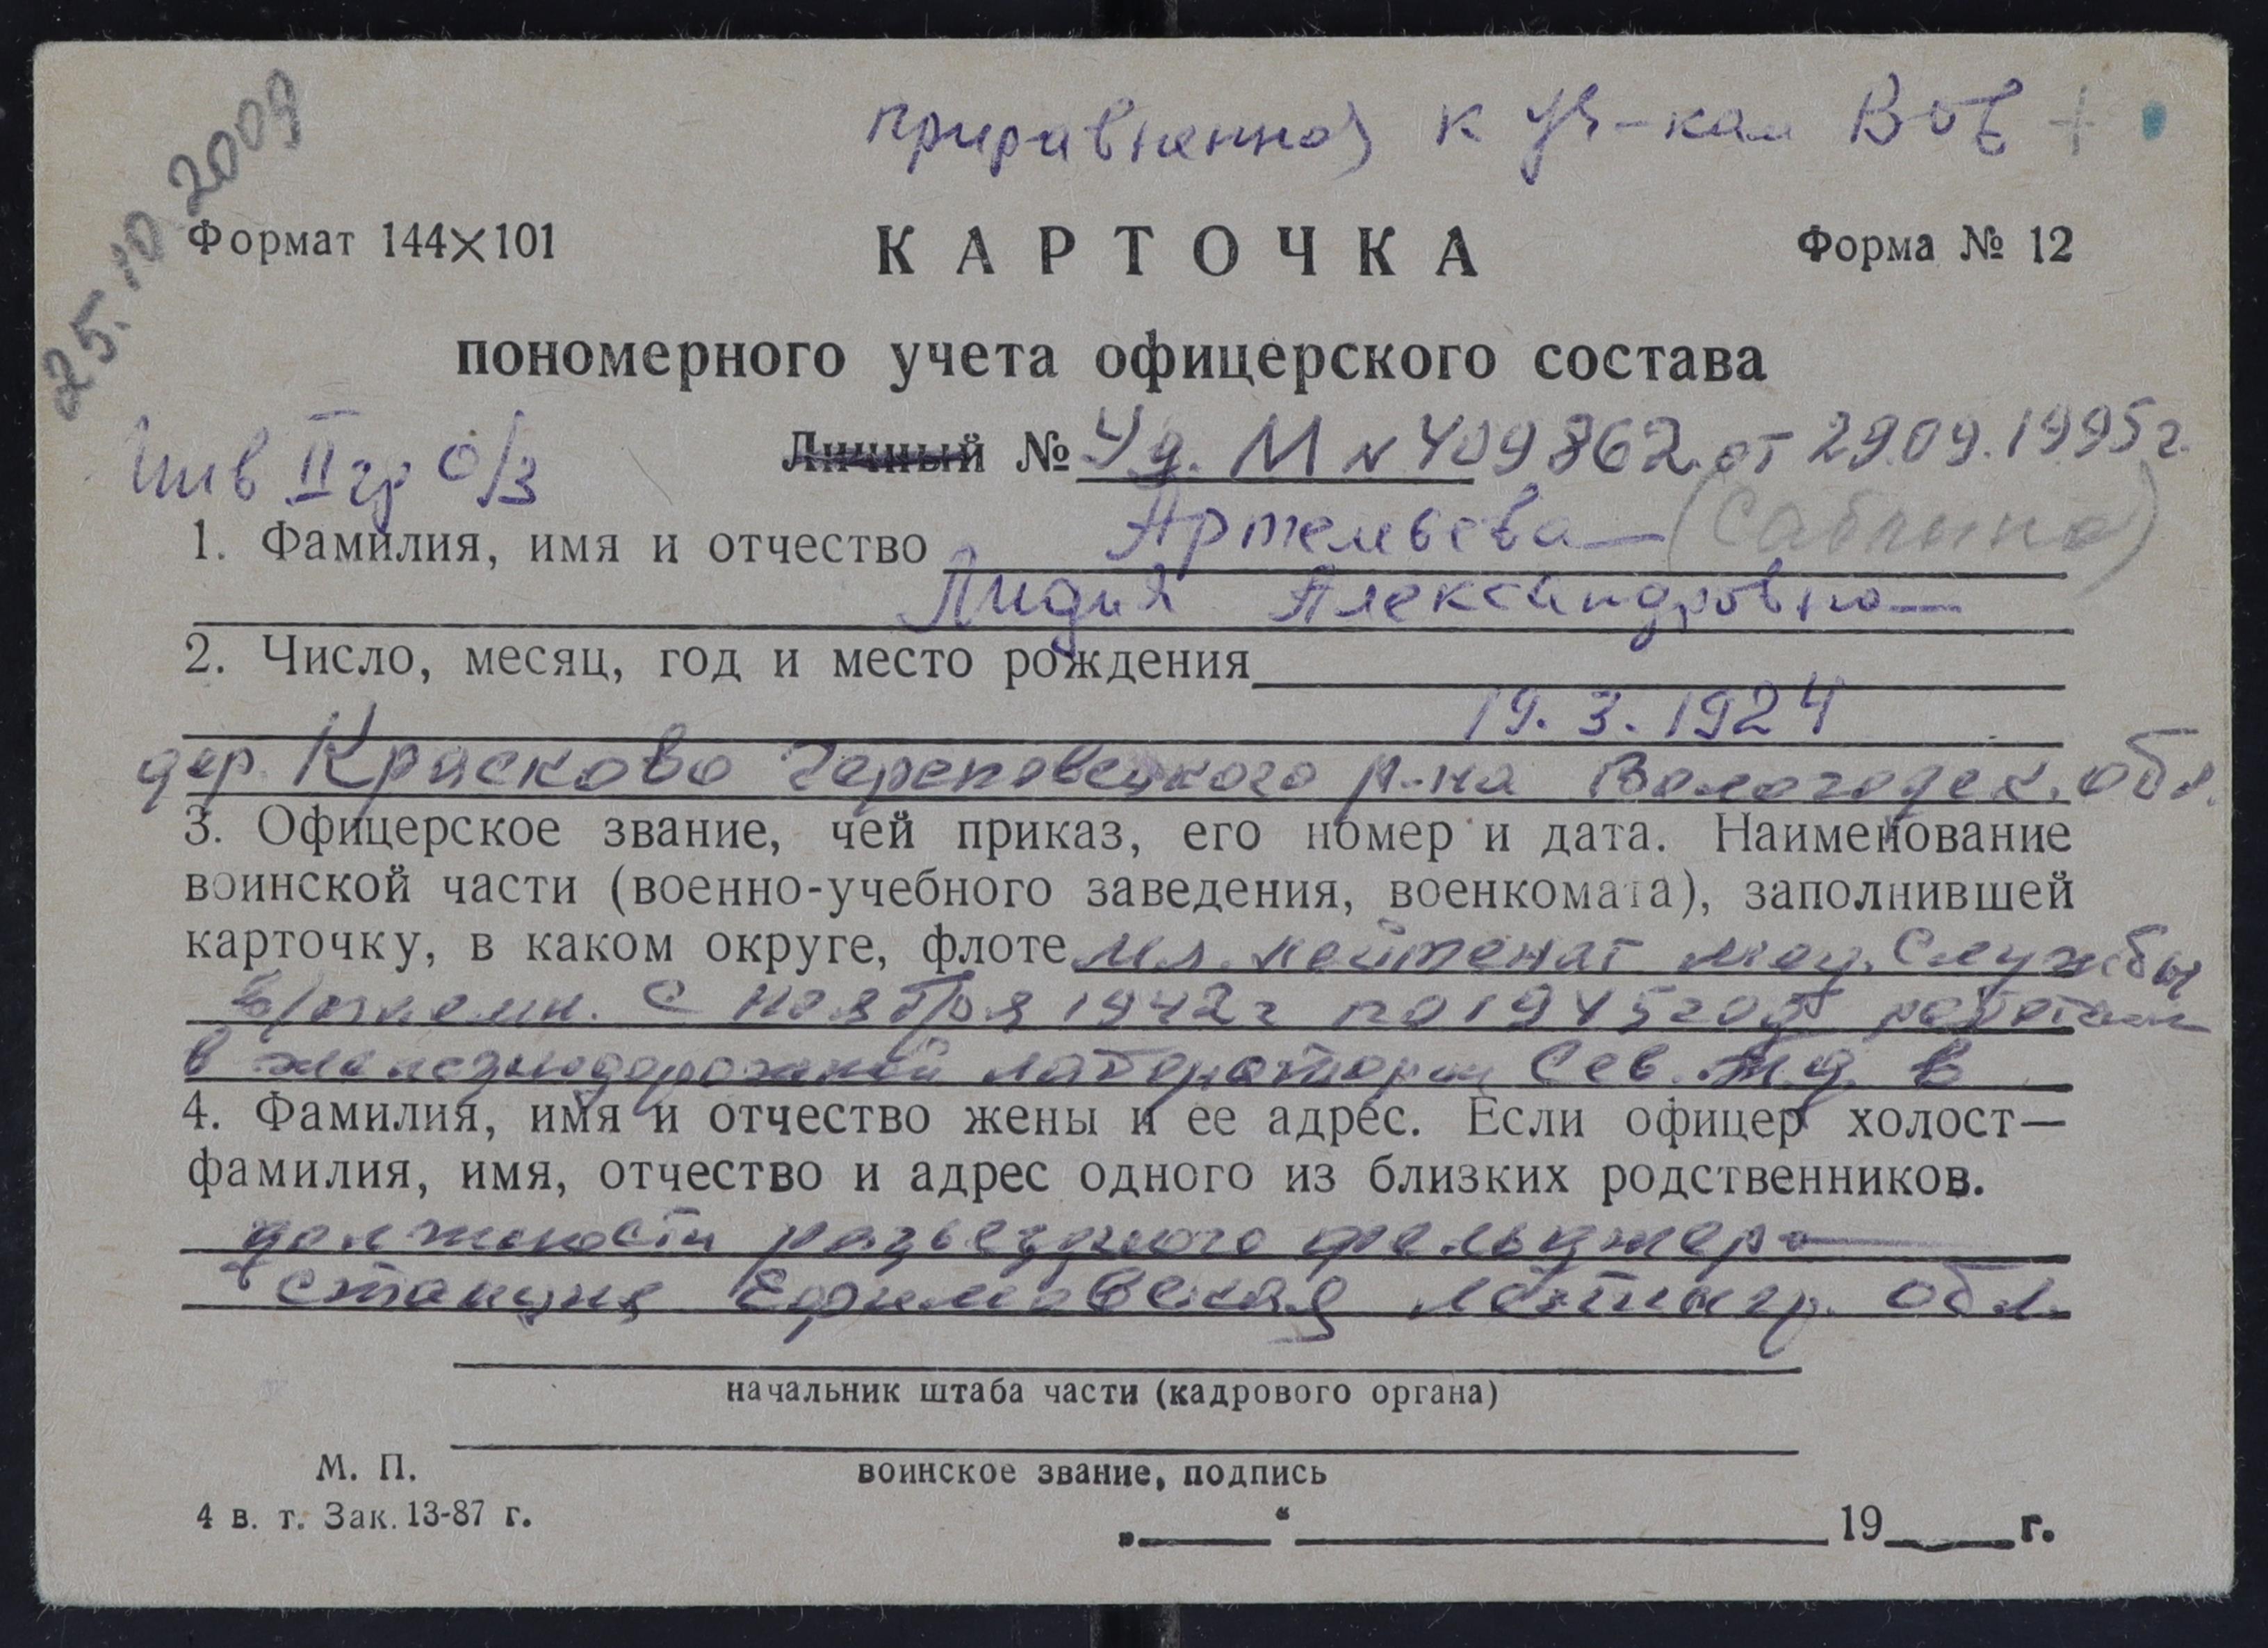 25.10.2009
приравненная к уч-кам ВОВ +
Формат 144×101
КАРТОЧКА
Форма № 12
пономерного учета офицерского состава
Инв II гр о/з
Личный № Уд. М № 409862 от 29.09.1995 г.
1. Фамилия, имя и отчество Артемьева (Саблина)
Лидия Александровна
2. Число, месяц, год и место рождения
19.3.1924
дер. Красково Череповецкого р-на Вологодск. обл.
3. Офицерское звание, чей приказ, его номер и дата. Наименование
воинской части (военно-учебного заведения, военкомата), заполнившей
карточку, в каком округе, флоте мл. лейтенат мед. службы
С ноября 1942 г по 1945 год работала
в железнодорожной лаборатории Сев. ж.д. в
4. Фамилия, имя и отчество жены и ее адрес. Если офицер холост—
фамилия, имя, отчество и адрес одного из близких родственников.
должности разъездного фельдшера
станция Ефимовская Ленингр. обл.
начальник штаба части (кадрового органа)
М. П.
воинское звание, подпись
4 в. т. Зак. 13-87 г.
„ “ 19 г.